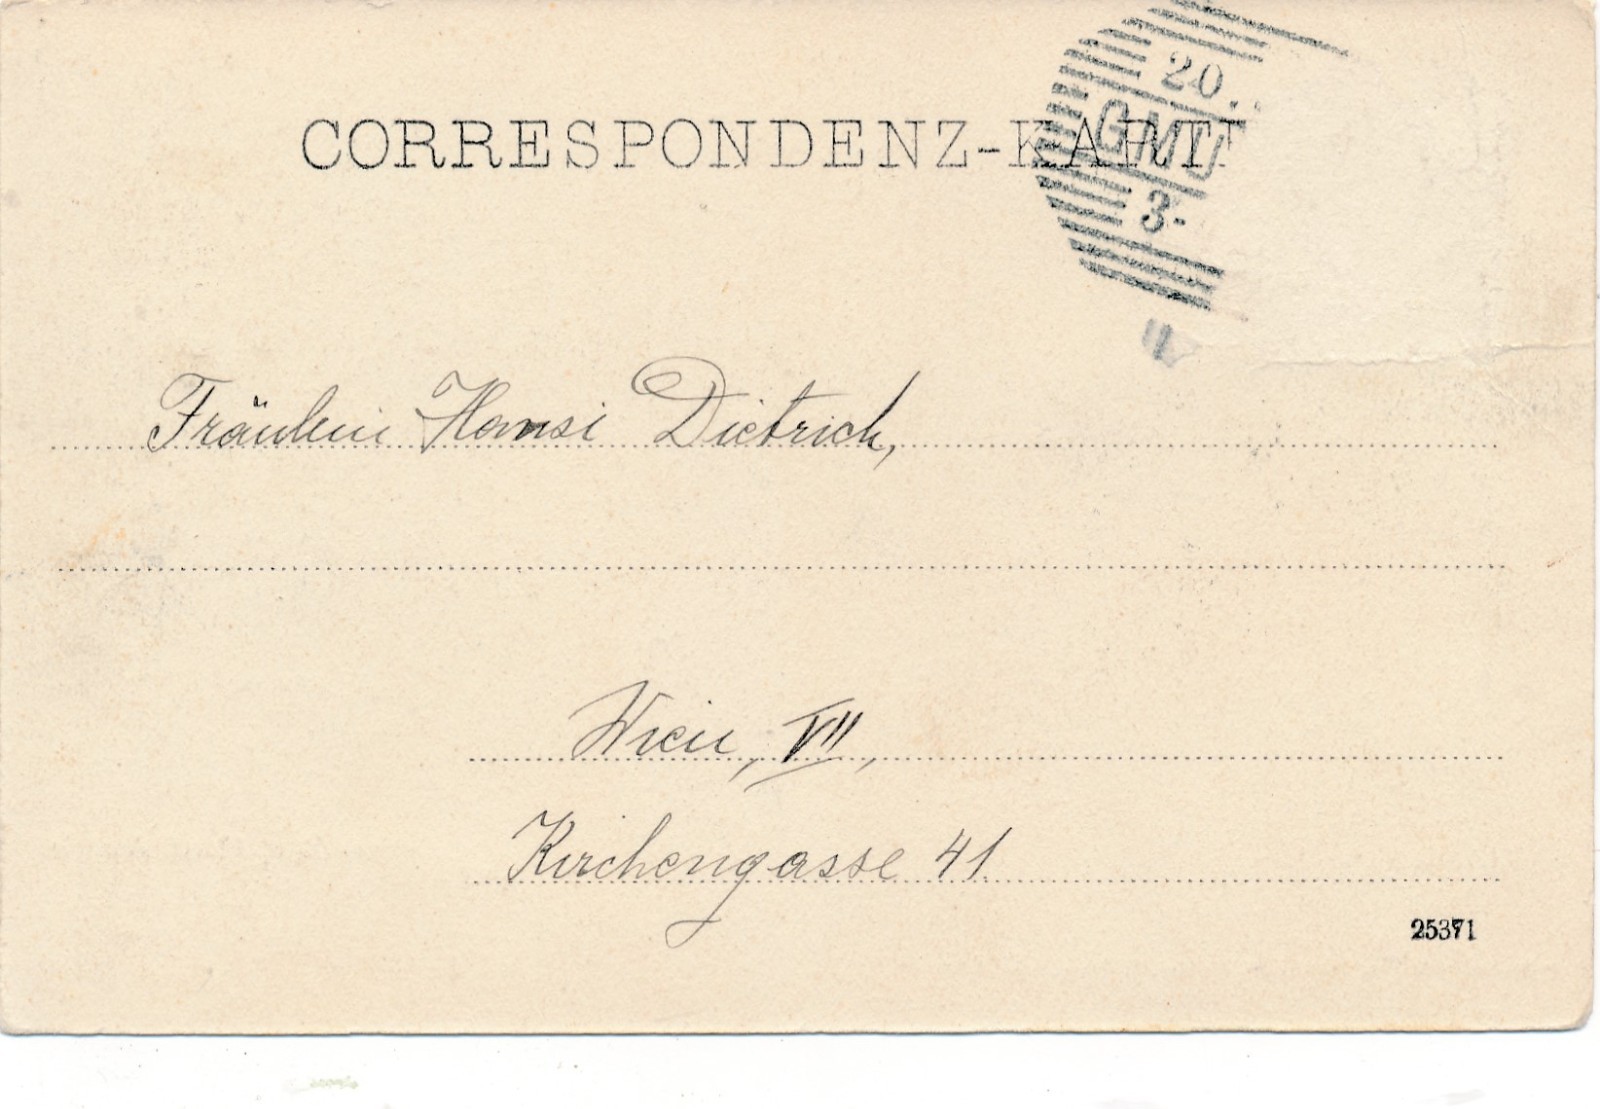 CORRESPONDENZ-KARTE
20.
GMU
3-
Fräulein Hansi Dietrich,
Wien, VII,
Kirchengasse 41
25371